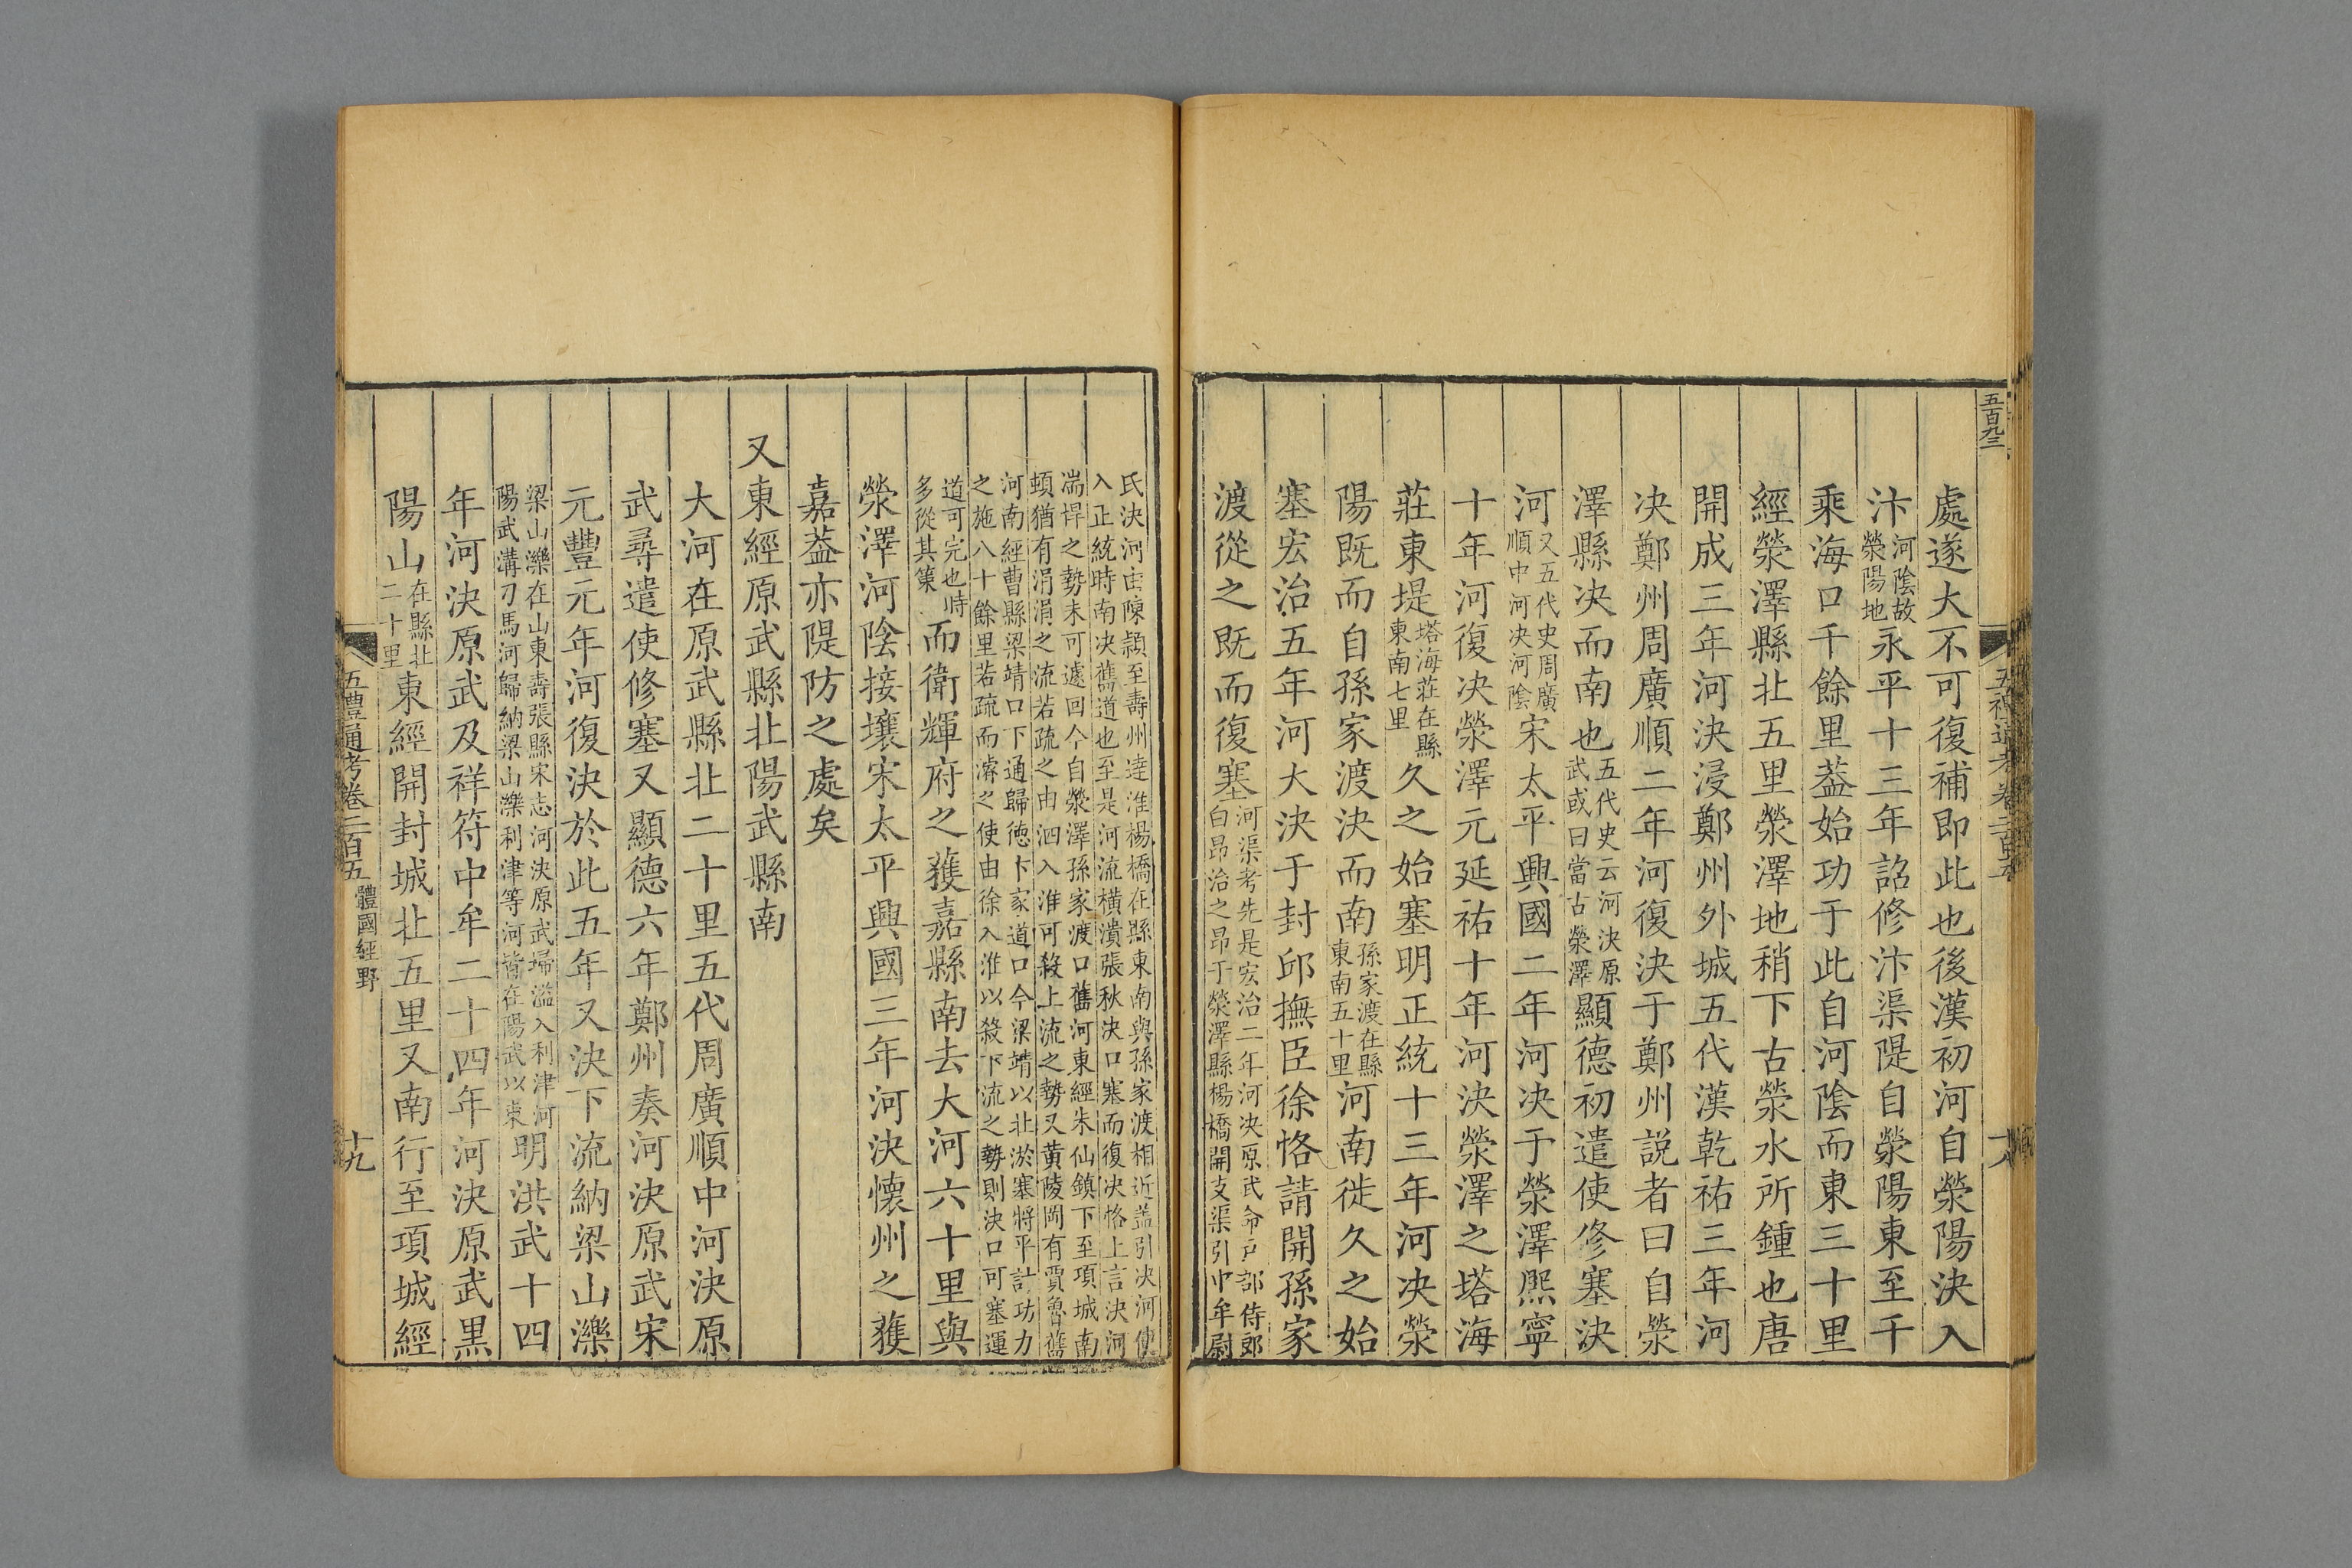 五百九三
處遂大不可復補即此也後漢初河自滎陽決入
汴河陰故滎陽地永平十三年詔修汴渠隄自滎陽東至千
乘海口千餘里葢始功于此自河陰而東三十里
經滎澤縣北五里滎澤地稍下古滎水所鍾也唐
開成三年河決浸鄭州外城五代漢乾祐三年河
決鄭州周廣順二年河復決于鄭州説者曰自滎
澤縣決而南也五代史云河決原武或曰當古滎澤顯德初遣使修塞決
河又五代史周廣順中河決河陰宋太平興國二年河決于滎澤熙寧
十年河復決滎澤元延祐十年河決滎澤之塔海
莊東堤塔海莊在縣東南七里久之始塞明正統十三年河決滎
陽既而自孫家渡決而南孫家渡在縣東南五十里河南徙久之始
塞宏治五年河大決于封邱撫臣徐恪請開孫家
渡從之既而復塞河渠考先是宏治二年河決原武命戸部侍郎白昂治之昂于滎澤縣楊橋開支渠引中牟尉
氏決河由陳頴至壽州逹淮楊橋在縣東南與孫家渡相近葢引決河使
入正統時南決舊道也至是河流橫潰張秋決口塞而復決恪上言決河
湍悍之勢未可遽回今自滎澤孫家渡口舊河東經朱仙鎮下至項城南
頓猶有涓涓之流若疏之由泗入淮可殺上流之勢又黄陵岡有賈魯舊
河南經曹縣梁靖口下通歸徳卞家道口今梁靖以北淤塞將平計功力
之施八十餘里若疏而濬之使由徐入淮以殺下流之勢則決口可塞運
道可完也時多從其策而衛輝府之獲嘉縣南去大河六十里與
滎澤河陰接壤宋太平興國三年河決懷州之獲
嘉葢亦隄防之處矣
又東經原武縣北陽武縣南
大河在原武縣北二十里五代周廣順中河決原
武尋遣使修塞又顯德六年鄭州奏河決原武宋
元豐元年河復決於此五年又決下流納梁山濼
梁山濼在山東壽張縣宋志河決原武埽溢入利津河陽武溝刁馬河歸納梁山濼利津等河皆在陽武以東明洪武十四
年河決原武及祥符中牟二十四年河決原武黒
陽山在縣北二十里東經開封城北五里又南行至項城經
五禮通考卷二百五 體國經野 十九